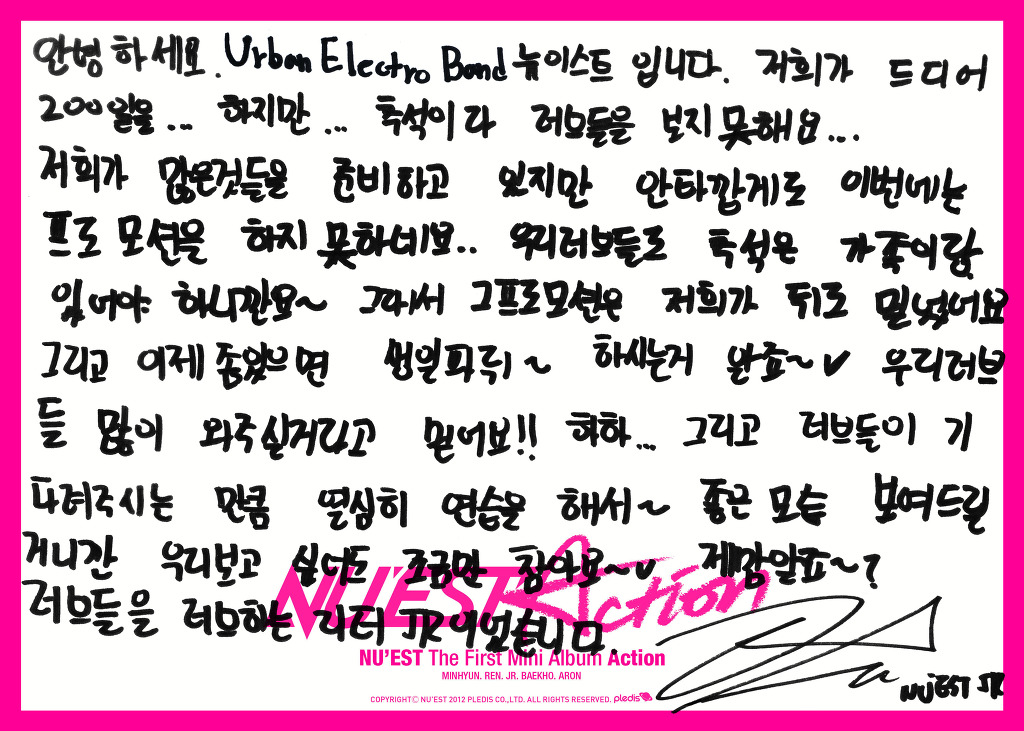 안녕하세요. Urban Electro Band 뉴이스트 입니다. 저희가 드디어
200일을... 하지만... 추석이라 러브들을 보지 못해요...
저희가 많은것들을 준비하고 있지만 안타깝게도 이번에는
프로모션을 하지 못하네요.. 우리러브들도 추석은 가족이랑
있어야 하니깐요~ 그래서 그프로모션은 저희가 뒤로 밀었어요
그리고 이제 좀있으면 생일파뤼~ 하시는거 완죠~♥ 우리러브
들 많이 와주실거라고 믿어요!! 하하... 그리고 러브들이 기
다려주시는 만큼 열심히 연습을 해서~ 좋은 모습 보여드릴
거니깐 우리보고 싶어도 조금만 참아요~♥ 제맘알죠~?
러브들을 러브하는 리더 JR이었습니다.
NU'EST Action
NU'EST The First Mini Album Action
MINHYUN. REN. JR. BAEKHO. ARON
COPYRIGHT© NU'EST 2012 PLEDIS CO.,LTD. ALL RIGHTS RESERVED. pledis
NU'EST JR